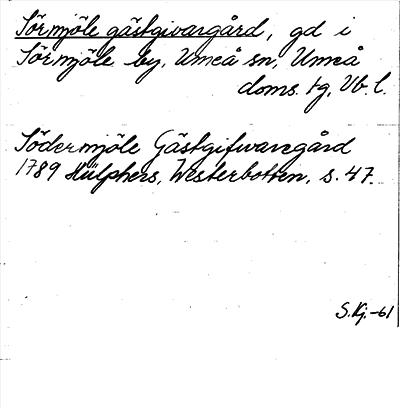 Sörmjöle gästgivargård, gd i
Sörmjöle by, Umeå sn, Umeå
doms. tg, Vb. l.
Södermjöle Gästgifwaregård
1789 Hülphers, Westerbotten, s. 47.
S. Kj. -61